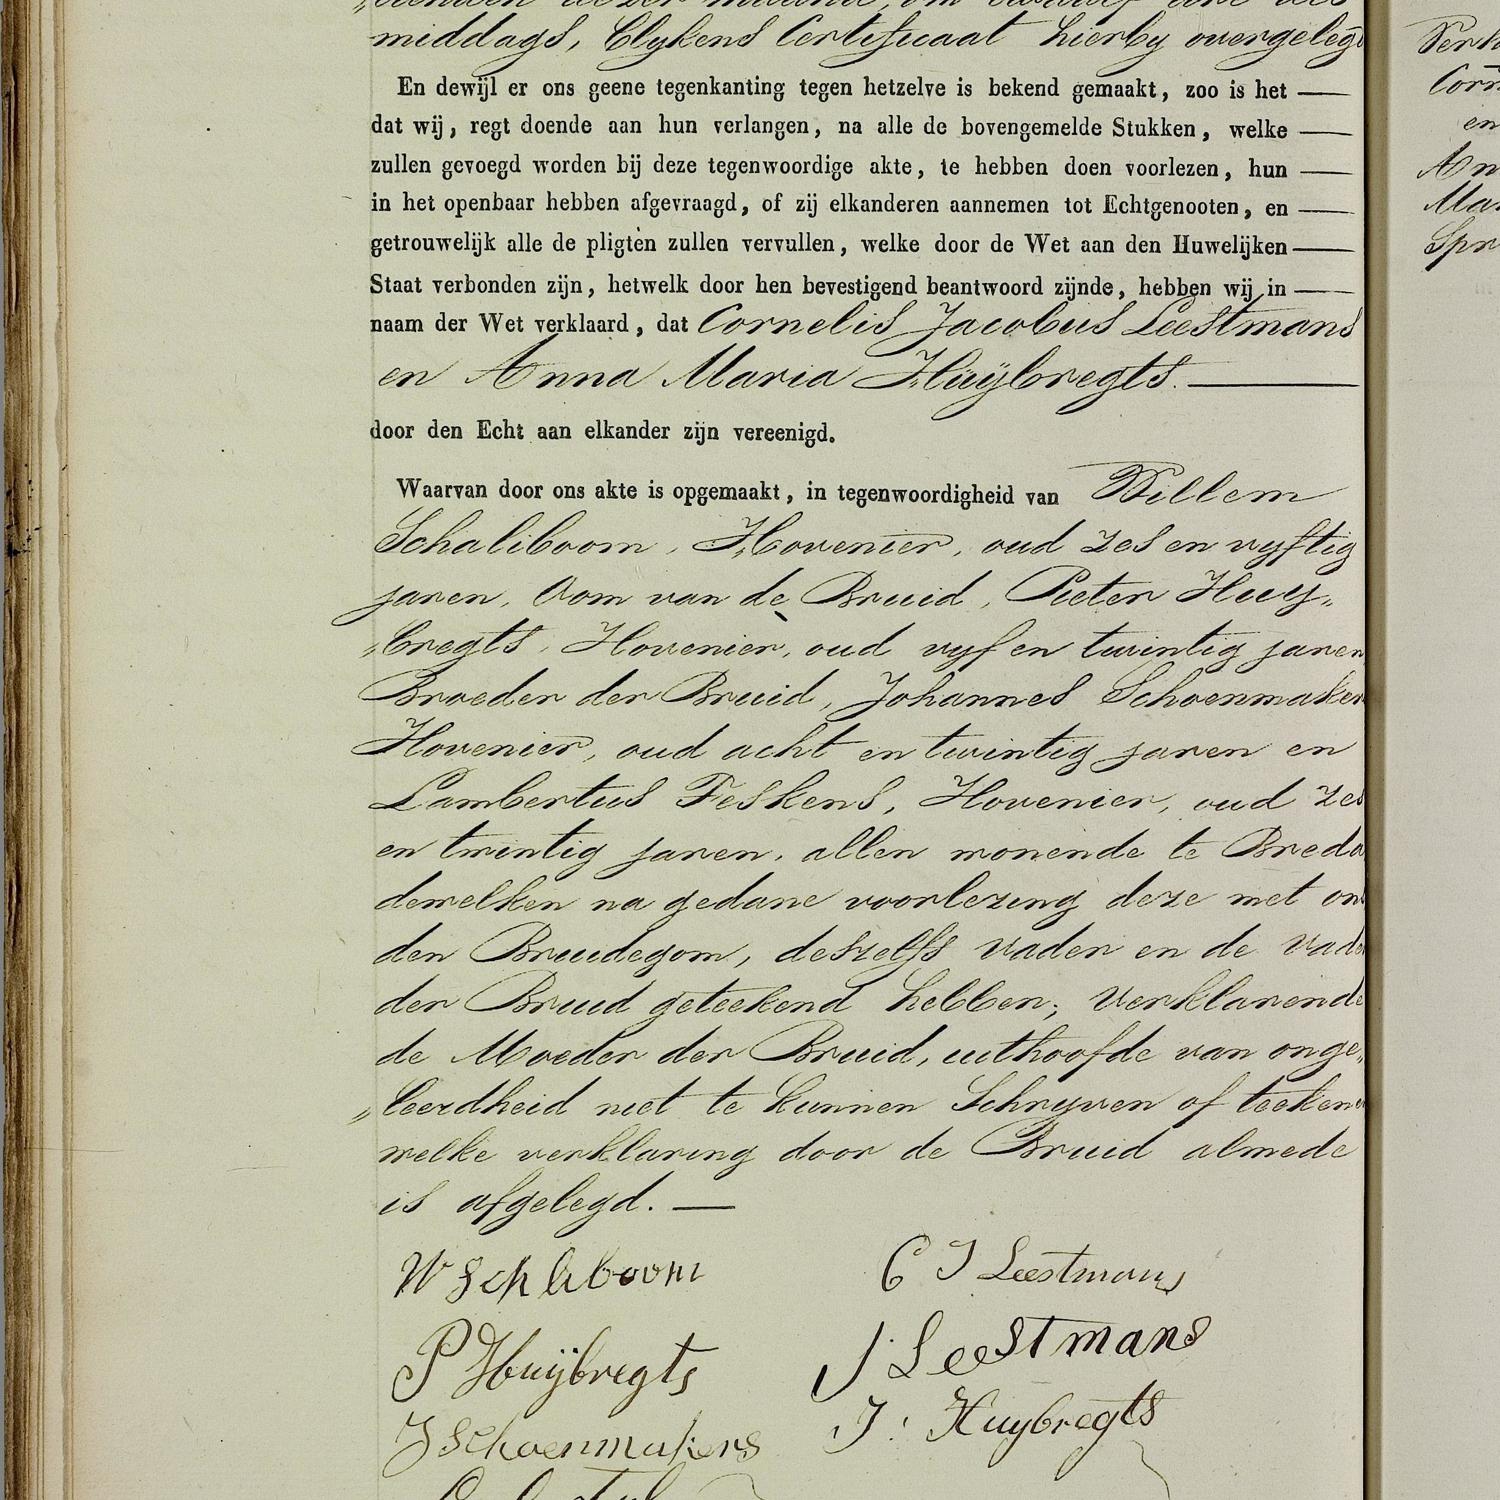 middags, blykens Certificaat hierby overgeleg
En dewijl er ons geene tegenkanting tegen hetzelve is bekend gemaakt, zoo is het
dat wij, regt doende aan hun verlangen, na alle de bovengemelde Stukken, welke
zullen gevoegd worden bij deze tegenwoordige akte, te hebben doen voorlezen, hun
in het openbaar hebben afgevraagd, of zij elkanderen aannemen tot Echtgenooten, en
getrouwelijk alle de pligten zullen vervullen, welke door de Wet aan den Huwelijken
Staat verbonden zijn, hetwelk door hen bevestigend beantwoord zijnde, hebben wij in
naam der Wet verklaard, dat Cornelis Jacobus Leestmans
en Anna Maria Huÿbregts.
door den Echt aan elkander zijn vereenigd.
Waarvan door ons akte is opgemaakt, in tegenwoordigheid van Willem
Schaliboom, Hovenier, oud zes en vyftig
jaren, Oom van de Bruid, Pieter Huy„
„bregts, Hovenier, oud vyf en twintig jaren
Broeder der Bruid, Johannes Schoenmaker
Hovenier, oud acht en twintig jaren en
Lambertus Feskens, Hovenier, oud zes
en twintig jaren, allen wonende te Breda
dewelken na gedane voorlezing deze met on
den Bruidegom, deszelfs vader en de vade
der Bruid geteekend hebben; verklarende
de Moeder der Bruid, uithoofde van onge„
„leerdheid niet te kunnen Schryven of teeken
welke verklaring door de Bruid almede
is afgelegd.
W Schliboom
C J Leestmans
P Huÿbregts
J Leestmans
J Schoenmakers
J. Huybregts
Serk
Corn
en
An
Mar
Spr